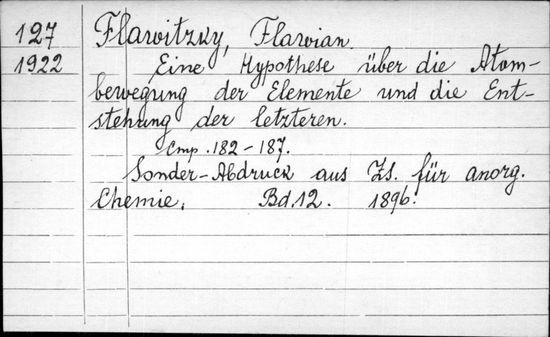 127 Flawitzky, Flawian.
1922 Eine Hypothese über die Atom-
bewegung der Elemente und die Ent-
stehung der letzteren.
Стр. 182-187.
Sonder-Abdruck aus Zs. für anorg.
Chemie. Bd. 12. 1896.